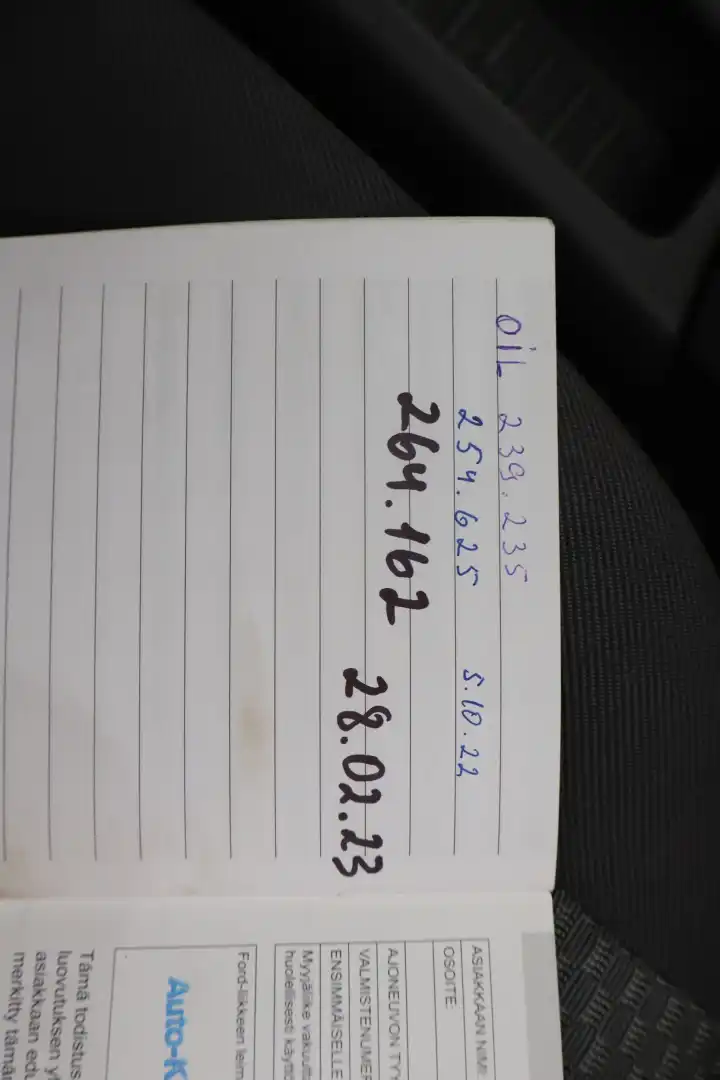 OIL 239.235
254.625 5.10.22
264.162
28.02.23
ASIAKKAAN NIMI
OSOITE:
AJONEUVON
VALMISTENUMER
ENSIMMÄISELLE
Myyjäliike vakuutt
huolellisesti käyttö
Ford-liikkeen leim
Auto-K
Tämä todistus
luovutuksen
asiakkaan edu
merkitty tämä